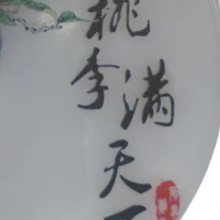 桃李
满天下